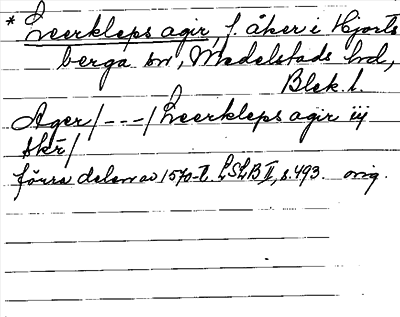 * Leerkleps agir, f. åker i Hjorts
berga sn, Medelstads hd,
Blek. l.
Ager/---/Leerkleps agir iij
skr/
förra delen av 1570-t. LSLB II, s. 493. orig.